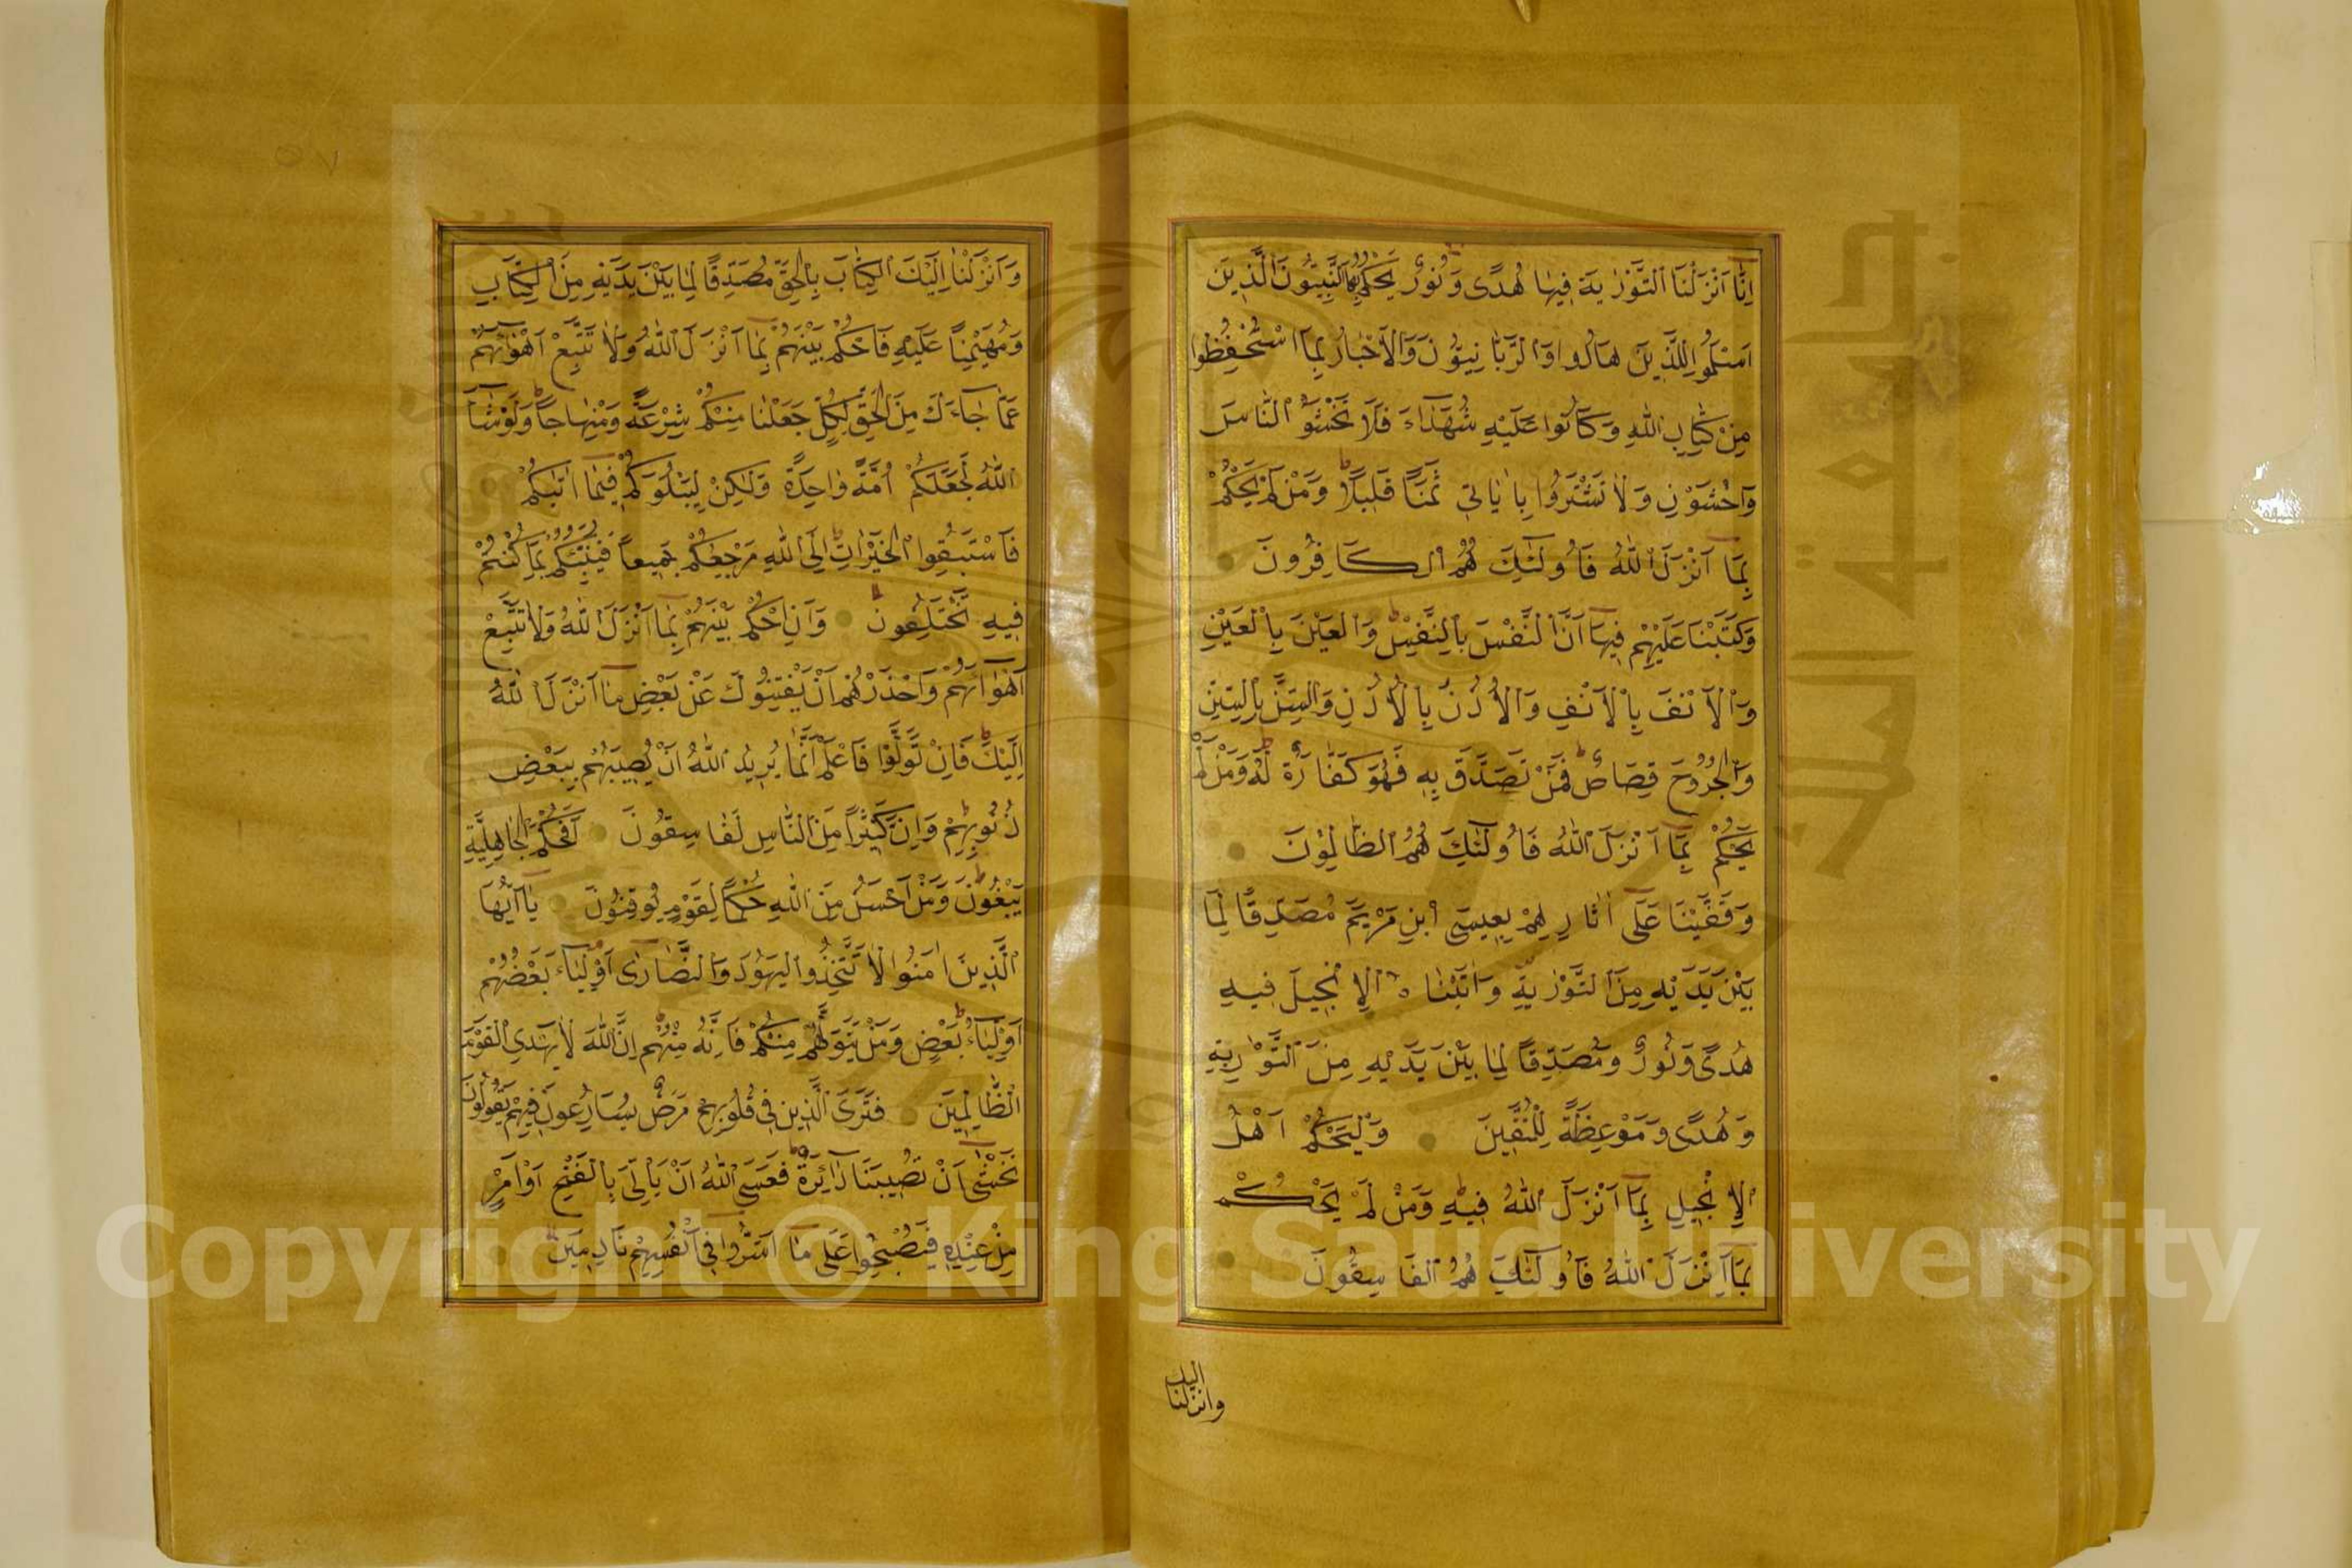 اِنَّا اَنْزَلْنَا التَّوْرٰيةَ فِيهَا هُدًى وَنُورٌ يَحْكُمُ بِهَا النَّبِيُّونَ الَّذِينَ
اَسْلَمُوا لِلَّذِينَ هَادُوا وَالرَّبَّانِيُّونَ وَالْاَحْبَارُ بِمَا اسْتُحْفِظُوا
مِنْ كِتَابِ اللهِ وَكَانُوا عَلَيْهِ شُهَدَاءَ فَلَا تَخْشَوُا النَّاسَ
وَاخْشَوْنِ وَلَا تَشْتَرُوا بِاٰيَاتِي ثَمَنًا قَلِيلًا وَمَنْ لَمْ يَحْكُمْ
بِمَا اَنْزَلَ اللهُ فَاُولٰئِكَ هُمُ الْكَافِرُونَ
وَكَتَبْنَا عَلَيْهِمْ فِيهَا اَنَّ النَّفْسَ بِالنَّفْسِ وَالْعَيْنَ بِالْعَيْنِ
وَالْاَنْفَ بِالْاَنْفِ وَالْاُذُنَ بِالْاُذُنِ وَالسِّنَّ بِالسِّنِّ
وَالْجُرُوحَ قِصَاصٌ فَمَنْ تَصَدَّقَ بِهِ فَهُوَ كَفَّارَةٌ لَهُ وَمَنْ لَمْ
يَحْكُمْ بِمَا اَنْزَلَ اللهُ فَاُولٰئِكَ هُمُ الظَّالِمُونَ
وَقَفَّيْنَا عَلَى اٰثَارِهِمْ بِعِيسَى ابْنِ مَرْيَمَ مُصَدِّقًا لِمَا
بَيْنَ يَدَيْهِ مِنَ التَّوْرٰيةِ وَاٰتَيْنَاهُ الْاِنْجِيلَ فِيهِ
هُدًى وَنُورٌ وَمُصَدِّقًا لِمَا بَيْنَ يَدَيْهِ مِنَ التَّوْرٰيةِ
وَهُدًى وَمَوْعِظَةً لِلْمُتَّقِينَ وَلْيَحْكُمْ اَهْلُ
الْاِنْجِيلِ بِمَا اَنْزَلَ اللهُ فِيهِ وَمَنْ لَمْ يَحْكُمْ
بِمَا اَنْزَلَ اللهُ فَاُولٰئِكَ هُمُ الْفَاسِقُونَ
وانزلنا اليك
وَاَنْزَلْنَا اِلَيْكَ الْكِتَابَ بِالْحَقِّ مُصَدِّقًا لِمَا بَيْنَ يَدَيْهِ مِنَ الْكِتَابِ
وَمُهَيْمِنًا عَلَيْهِ فَاحْكُمْ بَيْنَهُمْ بِمَا اَنْزَلَ اللهُ وَلَا تَتَّبِعْ اَهْوَائَهُمْ
عَمَّا جَاءَكَ مِنَ الْحَقِّ لِكُلٍّ جَعَلْنَا مِنْكُمْ شِرْعَةً وَمِنْهَاجًا وَلَوْ شَاءَ
اللهُ لَجَعَلَكُمْ اُمَّةً وَاحِدَةً وَلٰكِنْ لِيَبْلُوَكُمْ فِيمَا اٰتٰيكُمْ
فَاسْتَبِقُوا الْخَيْرَاتِ اِلَى اللهِ مَرْجِعُكُمْ جَمِيعًا فَيُنَبِّئُكُمْ بِمَا كُنْتُمْ
فِيهِ تَخْتَلِفُونَ وَاَنِ احْكُمْ بَيْنَهُمْ بِمَا اَنْزَلَ اللهُ وَلَا تَتَّبِعْ
اَهْوَائَهُمْ وَاحْذَرْهُمْ اَنْ يَفْتِنُوكَ عَنْ بَعْضِ مَا اَنْزَلَ اللهُ
اِلَيْكَ فَاِنْ تَوَلَّوْا فَاعْلَمْ اَنَّمَا يُرِيدُ اللهُ اَنْ يُصِيبَهُمْ بِبَعْضِ
ذُنُوبِهِمْ وَاِنَّ كَثِيرًا مِنَ النَّاسِ لَفَاسِقُونَ اَفَحُكْمَ الْجَاهِلِيَّةِ
يَبْغُونَ وَمَنْ اَحْسَنُ مِنَ اللهِ حُكْمًا لِقَوْمٍ يُوقِنُونَ يَا اَيُّهَا
الَّذِينَ اٰمَنُوا لَا تَتَّخِذُوا الْيَهُودَ وَالنَّصَارٰى اَوْلِيَاءَ بَعْضُهُمْ
اَوْلِيَاءُ بَعْضٍ وَمَنْ يَتَوَلَّهُمْ مِنْكُمْ فَاِنَّهُ مِنْهُمْ اِنَّ اللهَ لَا يَهْدِي الْقَوْمَ
الظَّالِمِينَ فَتَرَى الَّذِينَ فِي قُلُوبِهِمْ مَرَضٌ يُسَارِعُونَ فِيهِمْ يَقُولُونَ
نَخْشٰى اَنْ تُصِيبَنَا دَائِرَةٌ فَعَسَى اللهُ اَنْ يَاْتِيَ بِالْفَتْحِ اَوْ اَمْرٍ
مِنْ عِنْدِهِ فَيُصْبِحُوا عَلَى مَا اَسَرُّوا فِي اَنْفُسِهِمْ نَادِمِينَ
Copyright © King Saud University